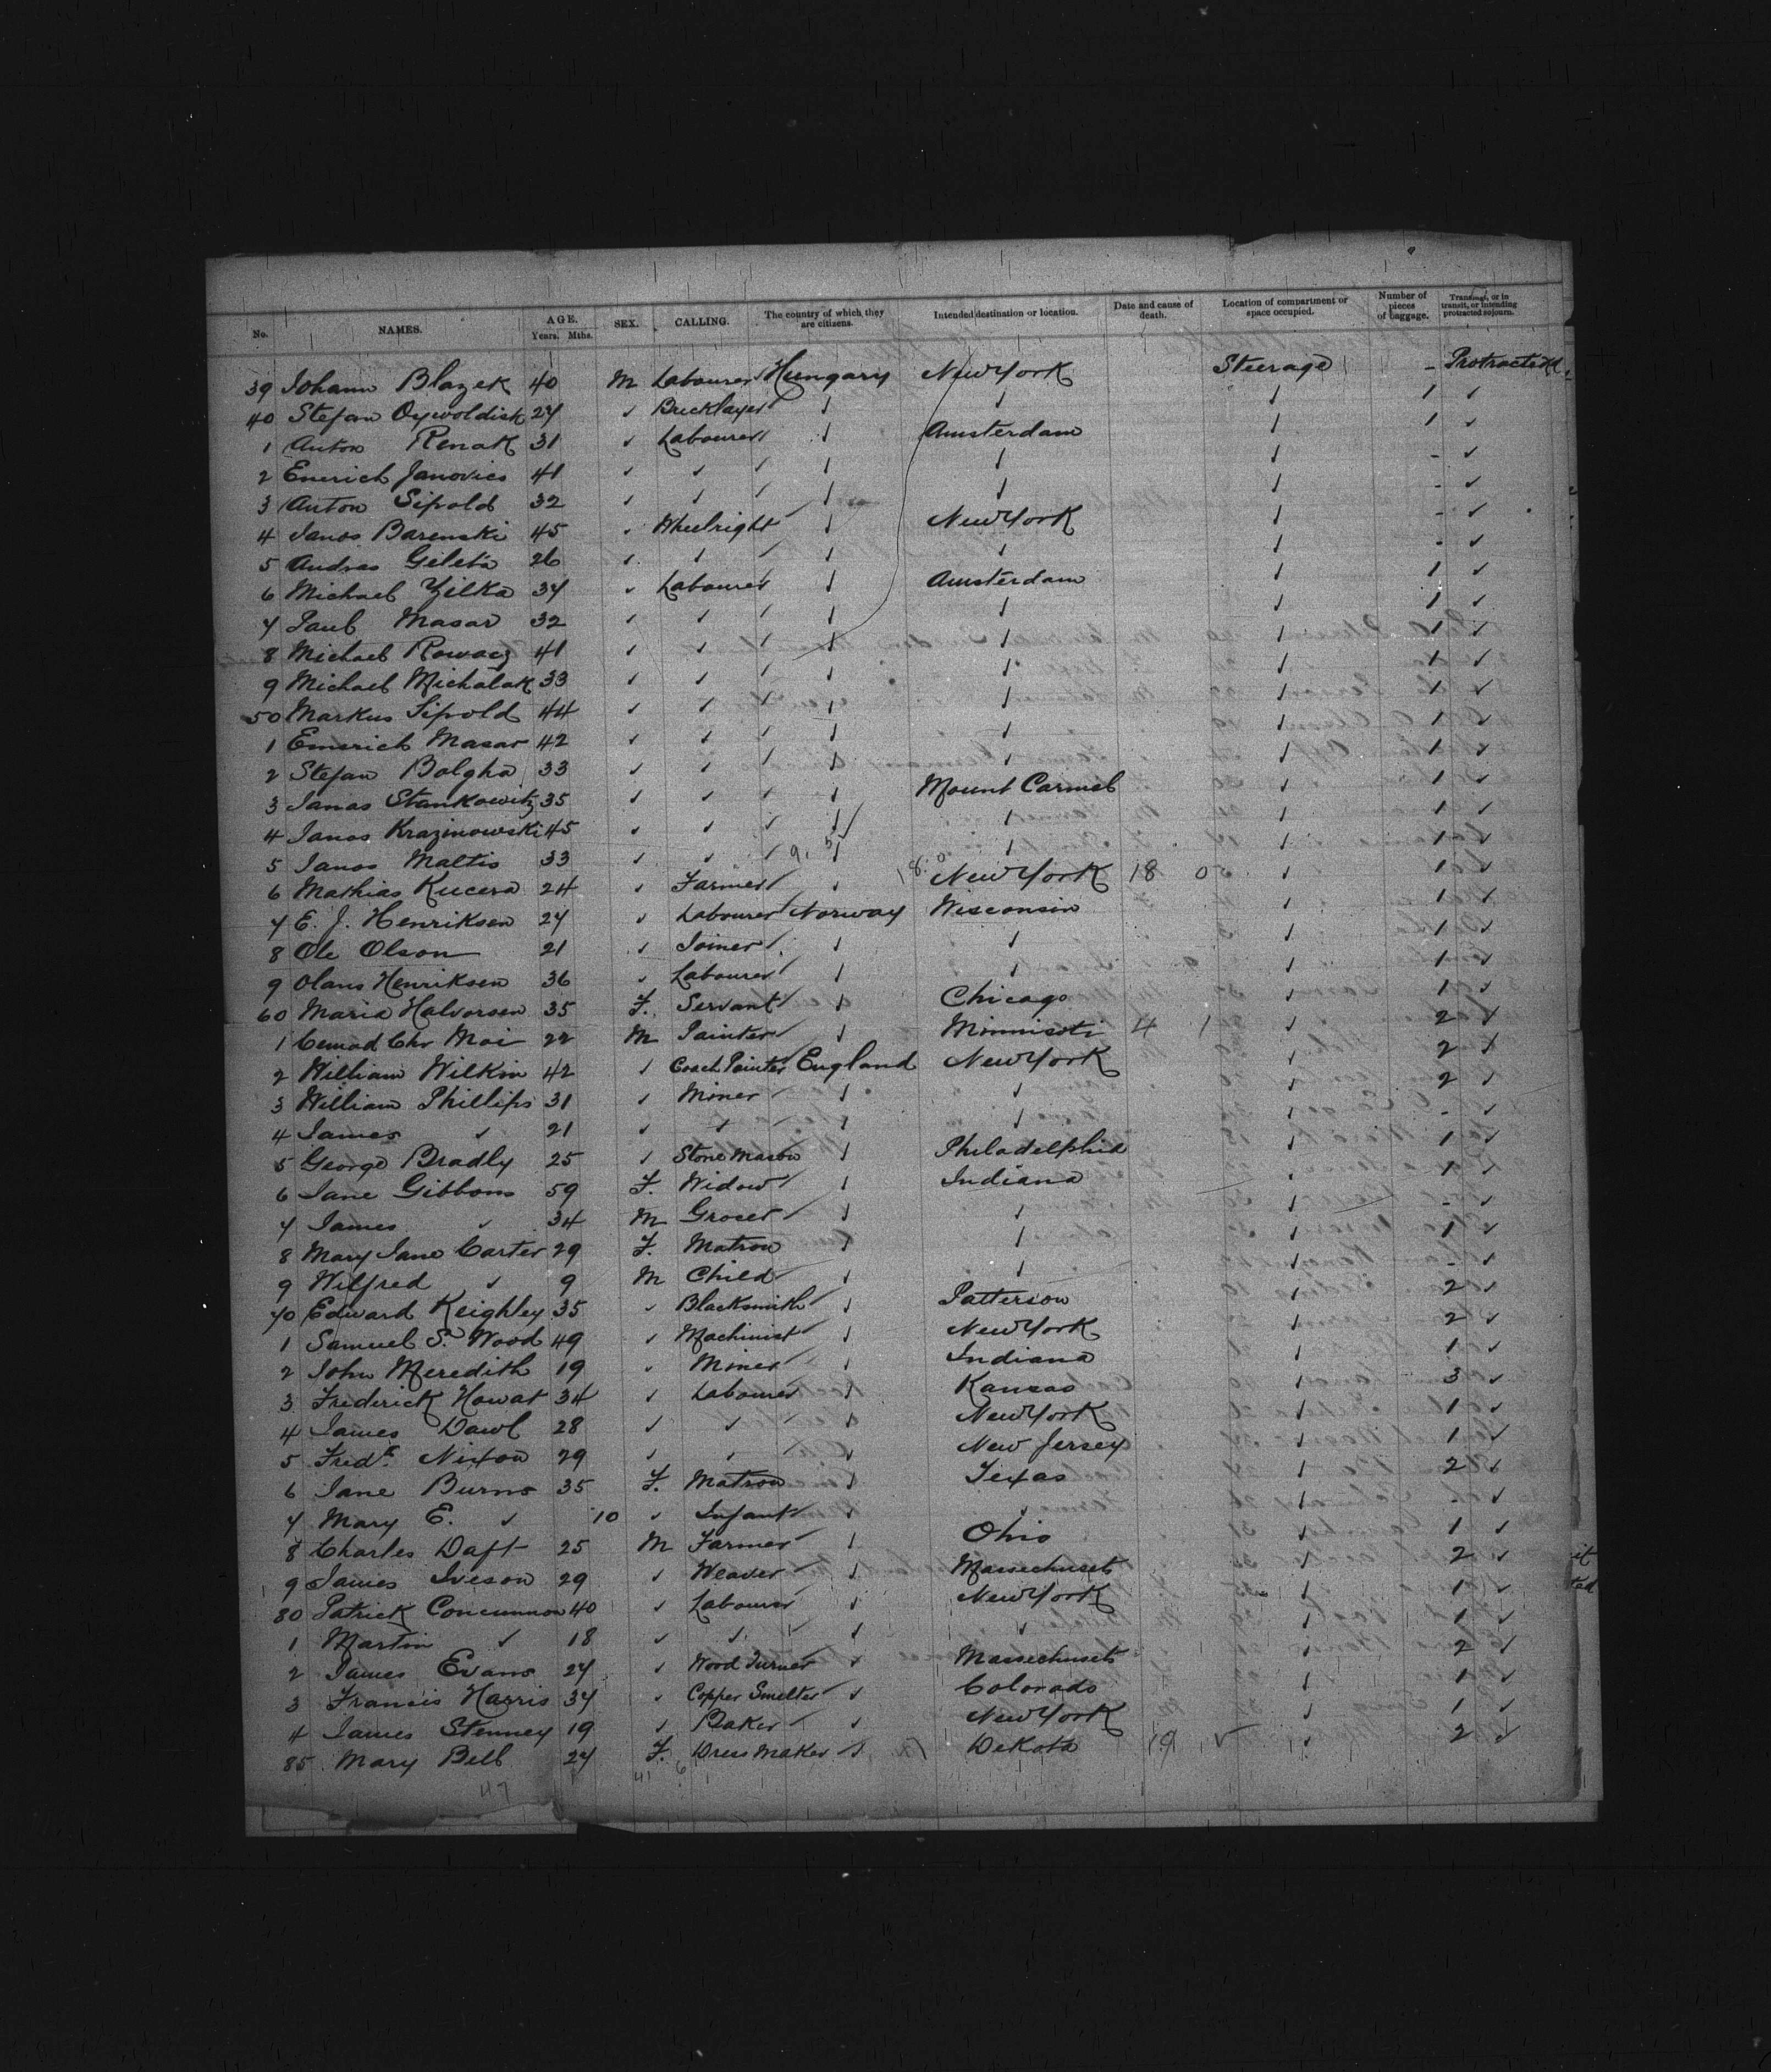 No. NAMES. AGE. Years. Mths. SEX. CALLING. The country of which they are citizens. Intended destination or location. Date and cause of death. Location of compartment or space occupied. Number of pieces of baggage. Transient, or in transit, or intending protracted sojourn.
39 Johann Blazek 40 M Labourer Hungary New York Steerage - Protracted
40 Stefan 27 ✓ Bricklayer ✓ ✓ ✓ 1 ✓
1 Anton Renak 31 ✓ Labourer ✓ Amsterdam ✓ 1 ✓
2 Emerich Janovics 41 ✓ ✓ ✓ ✓ ✓ - ✓
3 Anton Sipold 32 ✓ ✓ ✓ ✓ ✓ - ✓
4 Janos Barenski 45 ✓ Wheelright ✓ New York ✓ - ✓
5 Andras Geleta 26 ✓ ✓ ✓ ✓ ✓ - ✓
6 Michael Zilka 37 ✓ Labourer ✓ Amsterdam ✓ 1 ✓
7 Paul Masar 32 ✓ ✓ ✓ ✓ ✓ 1 ✓
8 Michael Rowacz 41 ✓ ✓ ✓ ✓ ✓ 1 ✓
9 Michael Michalak 33 ✓ ✓ ✓ ✓ ✓ 1 ✓
50 Markus Sipold 44 ✓ ✓ ✓ ✓ ✓ 1 ✓
1 Emerich Masar 42 ✓ ✓ ✓ ✓ ✓ 1 ✓
2 Stefan Bolgha 33 ✓ ✓ ✓ ✓ ✓ 1 ✓
3 Janas Stankowitz 35 ✓ ✓ ✓ Mount Carmel ✓ 1 ✓
4 Janos Krazinowski 45 ✓ ✓ ✓ ✓ ✓ 1 ✓
5 Janos Maltis 33 ✓ ✓ ✓ ✓ ✓ 1 ✓
6 Mathias Kucera 24 ✓ Farmer ✓ New York 18 0 ✓ 1 ✓
7 E. J. Henriksen 27 ✓ Labourer Norway Wisconsin ✓ 1 ✓
8 Ole Olson 21 ✓ Joiner ✓ ✓ ✓ 1 ✓
9 Olaus Henriksen 36 ✓ Labourer ✓ ✓ ✓ 1 ✓
60 Maria Halvorsen 35 F. Servant ✓ Chicago ✓ 1 ✓
1 Chr Moi 22 M Painter ✓ Minnisoti 4 1 ✓ 2 ✓
2 William Wilkin 42 ✓ Coach Painter England New York ✓ 2 ✓
3 William Phillips 31 ✓ Miner ✓ ✓ ✓ 2 ✓
4 James ✓ 21 ✓ ✓ ✓ ✓ ✓ - ✓
5 George Bradly 25 ✓ Stone Mason ✓ Philadelphia ✓ 1 ✓
6 Jane Gibbons 59 F. Widow ✓ Indiana ✓ 1 ✓
7 James ✓ 34 M Grocer ✓ ✓ ✓ - ✓
8 Mary Jane Carter 29 F. Matron ✓ ✓ ✓ 1 ✓
9 Wilfred ✓ 9 M Child ✓ ✓ ✓ - ✓
70 Edward Keighley 35 ✓ Blacksmith ✓ Patterson ✓ 2 ✓
1 Samuel S. Wood 49 ✓ Machinist ✓ New York ✓ 2 ✓
2 John Meredith 19 ✓ Miner ✓ Indiana ✓ 1 ✓
3 Frederick Howat 34 ✓ Labourer ✓ Kansas ✓ 3 ✓
4 James Dawl 28 ✓ ✓ ✓ New York ✓ 1 ✓
5 Fredk. Nixon 29 ✓ ✓ ✓ New Jersey ✓ 1 ✓
6 Jane Burns 35 F. Matron ✓ Texas ✓ 2 ✓
7 Mary E. ✓ 10 ✓ Infant ✓ ✓ ✓ - ✓
8 Charles Daft 25 M Farmer ✓ Ohio ✓ 1 ✓
9 James Iveson 29 ✓ Weaver ✓ Massechusets ✓ 2 ✓
80 Patrick Concunnon 40 ✓ Labourer ✓ New York ✓ 1 ✓
1 Martin ✓ 18 ✓ ✓ ✓ ✓ ✓ 1 ✓
2 James Evans 27 ✓ Wood Turner ✓ Massechusets ✓ 2 ✓
3 Francis Harris 37 ✓ Copper Smelter ✓ Colorado ✓ 1 ✓
4 James Stenney 19 ✓ Baker ✓ New York ✓ 1 ✓
85 Mary Bell 27 F. Dress Maker ✓ DeKota 19 ✓ ✓ 2 ✓
47 41 6